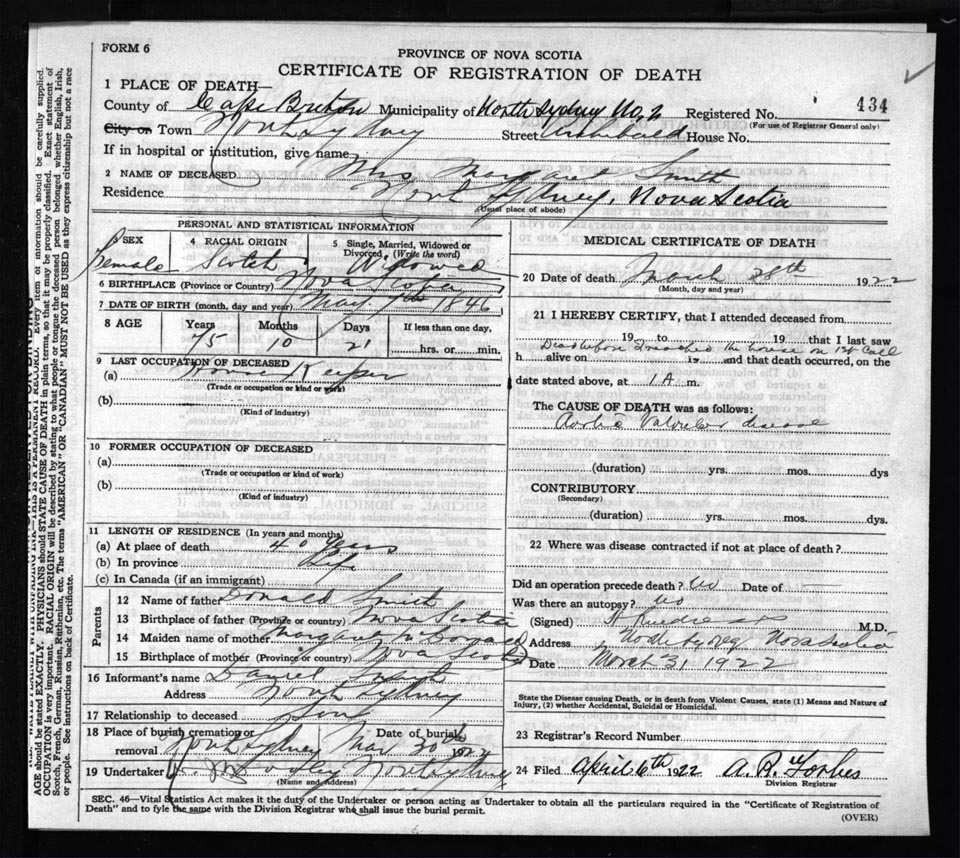 FORM 6
PROVINCE OF NOVA SCOTIA
CERTIFICATE OF REGISTRATION OF DEATH
1 PLACE OF DEATH—
County of Cape Breton Municipality of North Sydney No. 2 Registered No. 434
(For use of Registrar General only)
City or Town North Sydney Street Archibald House No.
If in hospital or institution, give name
2 NAME OF DECEASED Mrs. Margaret Smith
Residence North Sydney, Nova Scotia
(Usual place of abode)
PERSONAL AND STATISTICAL INFORMATION
3 SEX 4 RACIAL ORIGIN 5 Single, Married, Widowed or Divorced, (Write the word)
Female Scotch Widowed
6 BIRTHPLACE (Province or Country) Nova Scotia
7 DATE OF BIRTH (month, day and year) May 7th 1846
8 AGE Years Months Days If less than one day,
75 10 21 hrs. or min.
9 LAST OCCUPATION OF DECEASED
(a) House Keeper
(Trade or occupation or kind of work)
(b)
(Kind of industry)
10 FORMER OCCUPATION OF DECEASED
(a)
(Trade or occupation or kind of work)
(b)
(Kind of industry)
11 LENGTH OF RESIDENCE (In years and months)
(a) At place of death 40 years
(b) In province Life
(c) In Canada (if an immigrant)
Parents
12 Name of father Donald Smith
13 Birthplace of father (Province or country) Nova Scotia
14 Maiden name of mother Margaret McDonald
15 Birthplace of mother (Province or country) Nova Scotia
16 Informant's name Daniel Smith
Address North Sydney
17 Relationship to deceased Son
18 Place of burial cremation or removal North Sydney Date of burial Mar 30th 1922
19 Undertaker North Sydney
(Name and Address)
MEDICAL CERTIFICATE OF DEATH
20 Date of death March 28th 1922
(Month, day and year)
21 I HEREBY CERTIFY, that I attended deceased from
19 to 19 that I last saw
Dead before I reached the house on 1st call
h alive on 19 and that death occurred, on the
date stated above, at 1 A m.
The CAUSE OF DEATH was as follows:
Aortic Valvular disease
(duration) yrs. mos. dys
CONTRIBUTORY
(Secondary)
(duration) yrs. mos. dys.
22 Where was disease contracted if not at place of death?
Did an operation precede death? No Date of
Was there an autopsy? No
(Signed) M.D.
Address North Sydney Nova Scotia
Date March 31 1922
State the Disease causing Death, or in death from Violent Causes, state (1) Means and Nature of
Injury, (2) whether Accidental, Suicidal or Homicidal.
23 Registrar's Record Number
24 Filed April 6th 1922 A. R. Forbes
Division Registrar
SEC. 46—Vital Statistics Act makes it the duty of the Undertaker or person acting as Undertaker to obtain all the particulars required in the "Certificate of Registration of
Death" and to fyle the same with the Division Registrar who shall issue the burial permit.
(OVER)
AGE should be stated EXACTLY. PHYSICIANS should STATE CAUSE OF DEATH in plain terms, so that it may be properly classified. Exact statement of
OCCUPATION is very important. RACIAL ORIGIN will be described by stating to what people or tongue the deceased person belonged whether English, Irish,
Scotch, French, German, Russian, Ruthenian, etc. The terms "AMERICAN" OR "CANADIAN" MUST NOT BE USED as they express citizenship but not a race
or people. See instructions on back of Certificate.